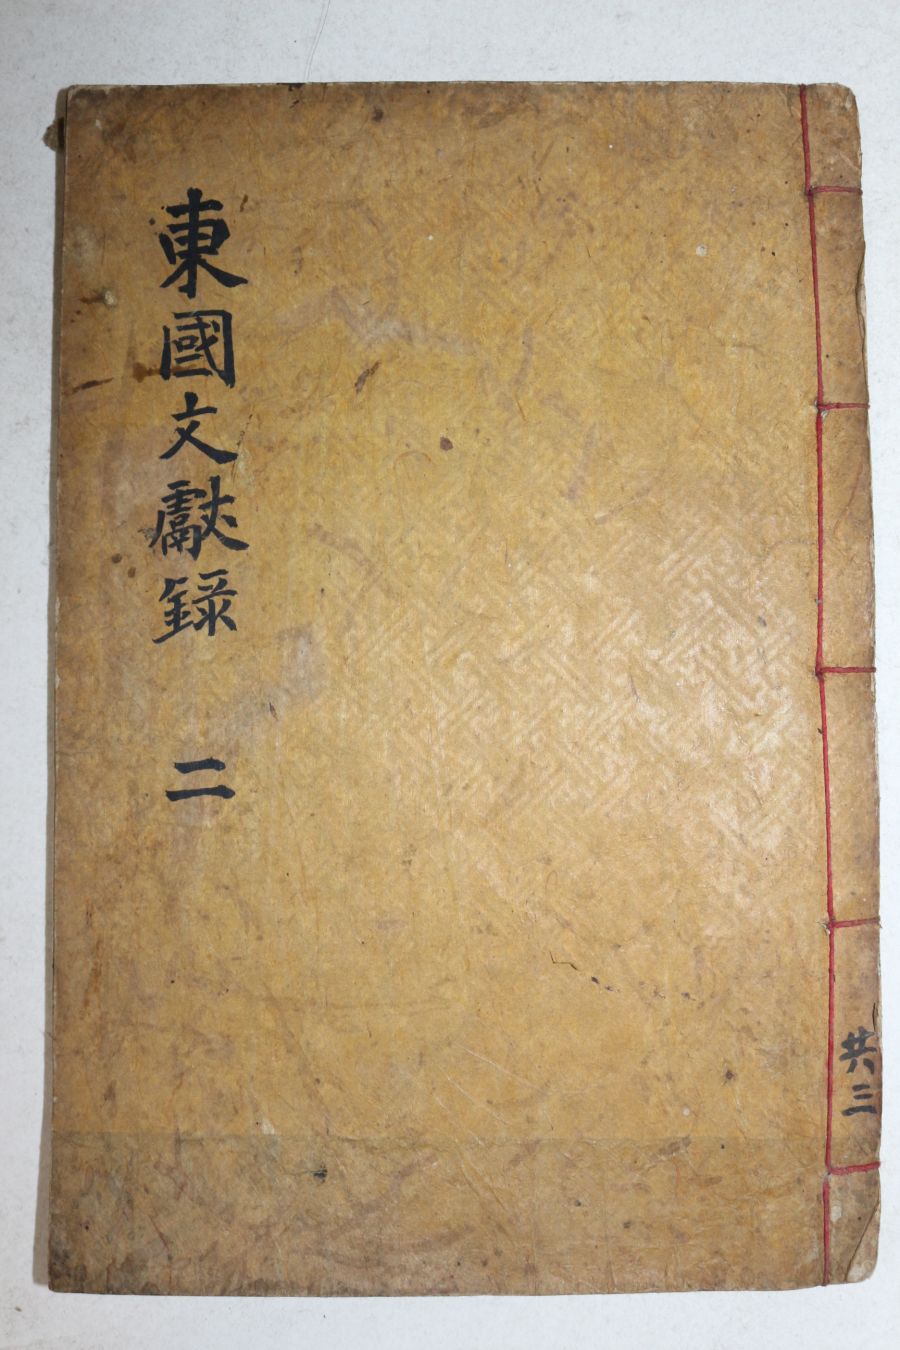 東國文獻錄 二
共三